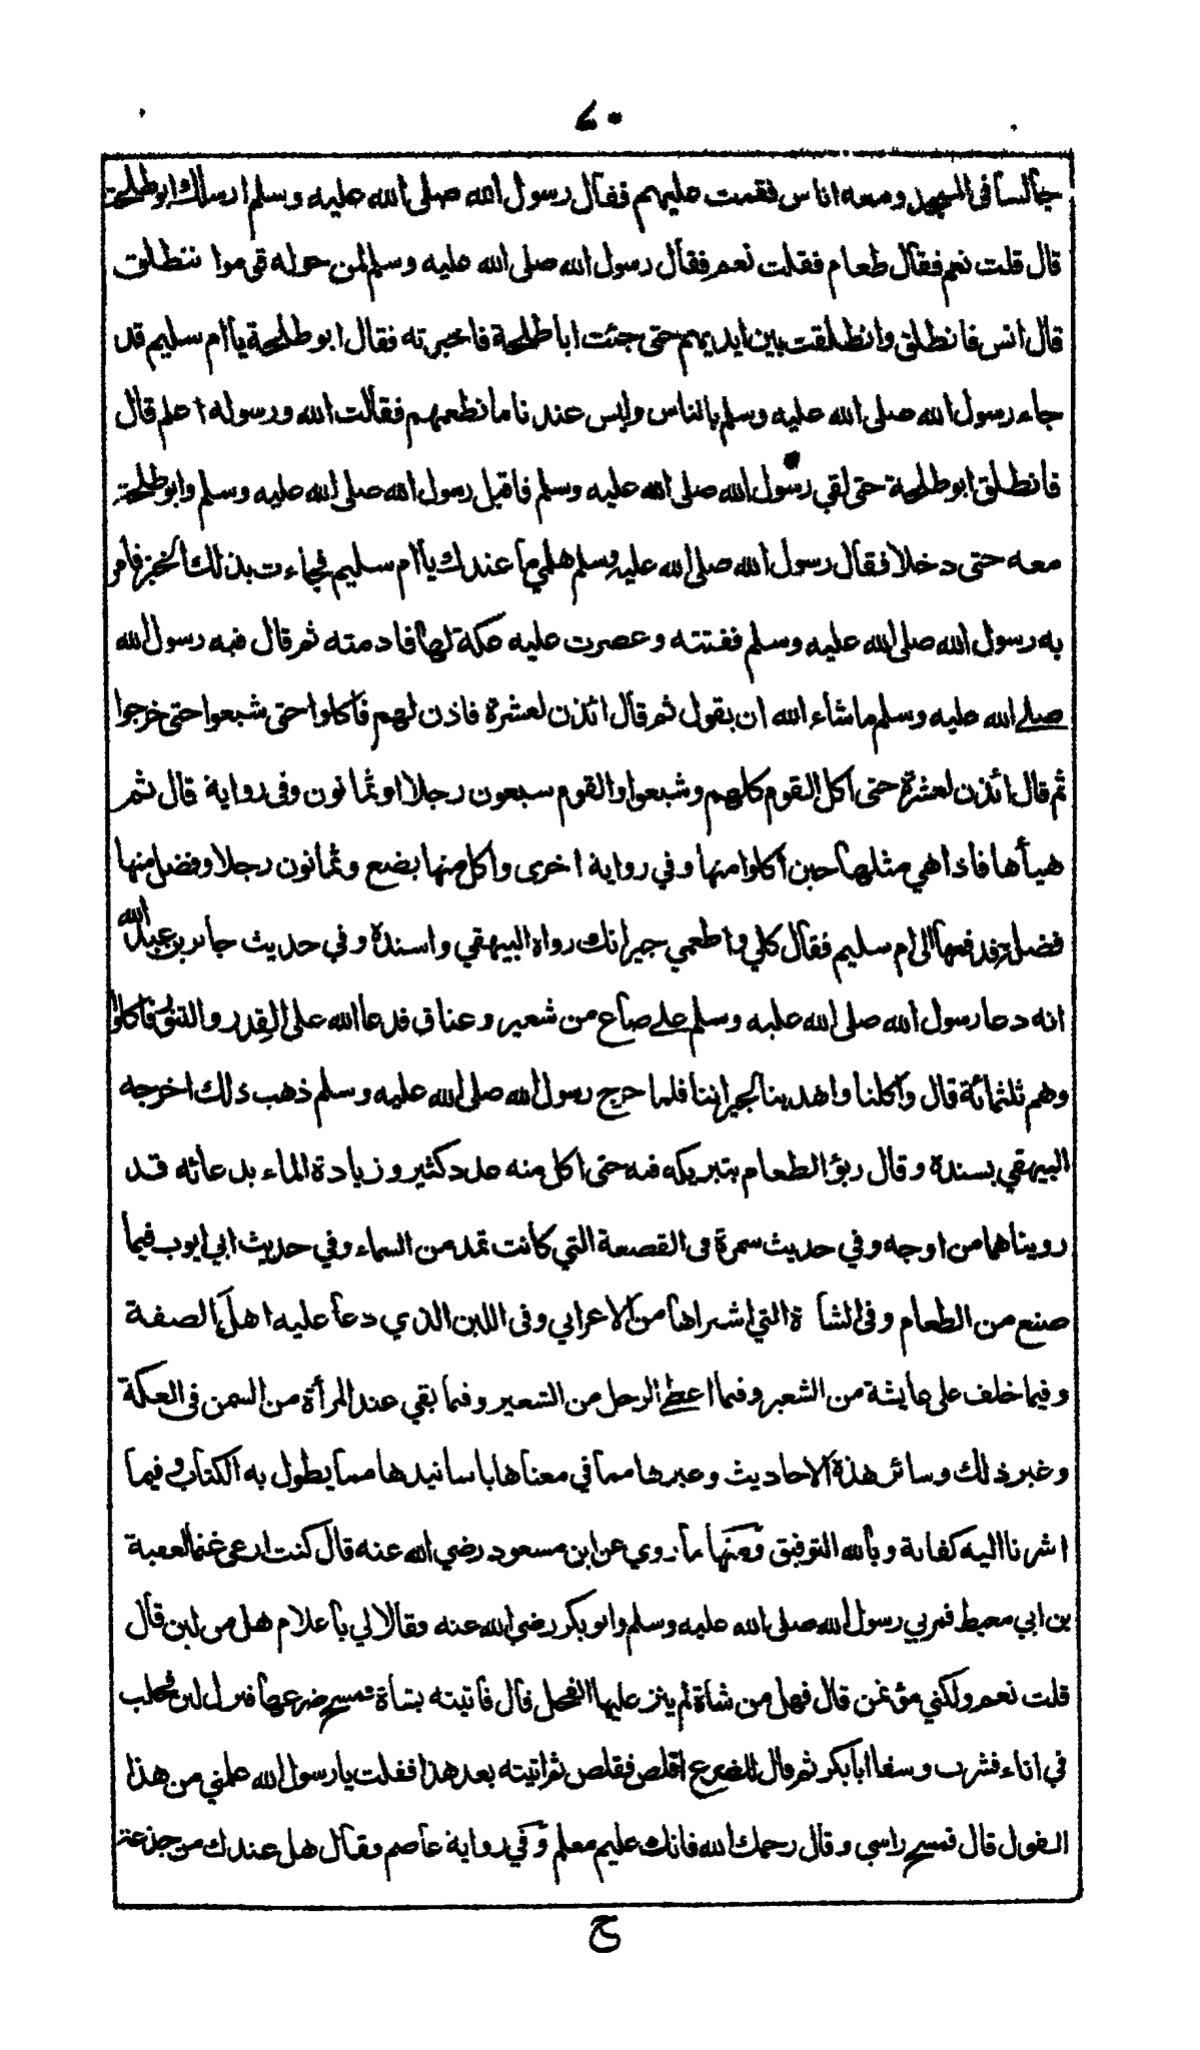 ٤٠
جالسا في المسجد ومعه اناس فقمت عليهم فقال رسول الله صلى الله عليه وسلم ارسلك ابو طلحة
قال قلت نعم فقال طعام فقلت نعم فقال رسول الله صلى الله عليه وسلم لمن حوله قوموا ننطلق
قال انس فانطلق وانطلقت بين ايديهم حتى جئت ابا طلحة فاخبرته فقال ابو طلحة يا ام سليم قد
جاء رسول الله صلى الله عليه وسلم بالناس وليس عندنا ما نطعمهم فقالت الله ورسوله اعلم قال
فانطلق ابو طلحة حتى لقي رسول الله صلى الله عليه وسلم فاقبل رسول الله صلى الله عليه وسلم وابو طلحة
معه حتى دخلا فقال رسول الله صلى الله عليه وسلم هلمي ما عندك يا ام سليم فجاءت بذلك الخبز فامر
به رسول الله صلى الله عليه وسلم ففتته وعصرت عليه عكة لها فادمته ثم قال فيه رسول الله
صلى الله عليه وسلم ما شاء الله ان يقول ثم قال ائذن لعشرة فاذن لهم فاكلوا حتى شبعوا حتى خرجوا
ثم قال ائذن لعشرة حتى اكل القوم كلهم وشبعوا والقوم سبعون رجلا او ثمانون وفي رواية قال ثم
هيأها فاذا هي مثلها حين اكلوا منها وفي رواية اخرى واكل منها بضع وثمانون رجلا وفضل منها
فضلة فدفعها الى ام سليم فقال كلي واطعمي جيرانك رواه البيهقي واسنده وفي حديث جابر بن عبد الله
انه دعا رسول الله صلى الله عليه وسلم على صاع من شعير وعناق فدعا الله على القدر والتنور فاكلوا
وهم ثلثمائة قال واكلنا واهدينا لجيراننا فلما خرج رسول الله صلى الله عليه وسلم ذهب ذلك اخرجه
البيهقي بسنده وقال ربؤ الطعام بتبريكه فيه حتى اكل منه عدد كثير وزيادة الماء بدعائه قد
رويناهما من اوجه وفي حديث سمرة في القصعة التي كانت تمد من السماء وفي حديث ابي ايوب فيما
صنع من الطعام وفي الشاة التي اشتراها من الاعرابي وفي اللبن الذي دعا عليه اهل الصفة
وفيما خلف على عايشة من الشعير وفيما اعطى الرجل من الشعير وفيما بقي عند المرأة من السمن في العكة
وغير ذلك وسائر هذه الاحاديث وغيرها مما في معناها باسانيدها مما يطول به الكتاب وفيما
اشرنا اليه كفاية وبالله التوفيق ومنها ما روي عن ابن مسعود رضي الله عنه قال كنت ارعى غنما لعقبة
بن ابي معيط فمر بي رسول الله صلى الله عليه وسلم وابو بكر رضي الله عنه وقالا لي يا غلام هل من لبن قال
قلت نعم ولكني مؤتمن قال فهل من شاة لم ينز عليها الفحل قال فاتيته بشاة فمسح ضرعها فنزل لبن فحلب
في اناء فشرب وسقا ابا بكر ثم قال للضرع اقلص فقلص ثم اتيته بعد هذا فقلت يا رسول الله علمني من هذا
القول قال فمسح راسي وقال رحمك الله فانك عليم معلم وفي رواية عاصم وقال هل عندك من جذعة
ح